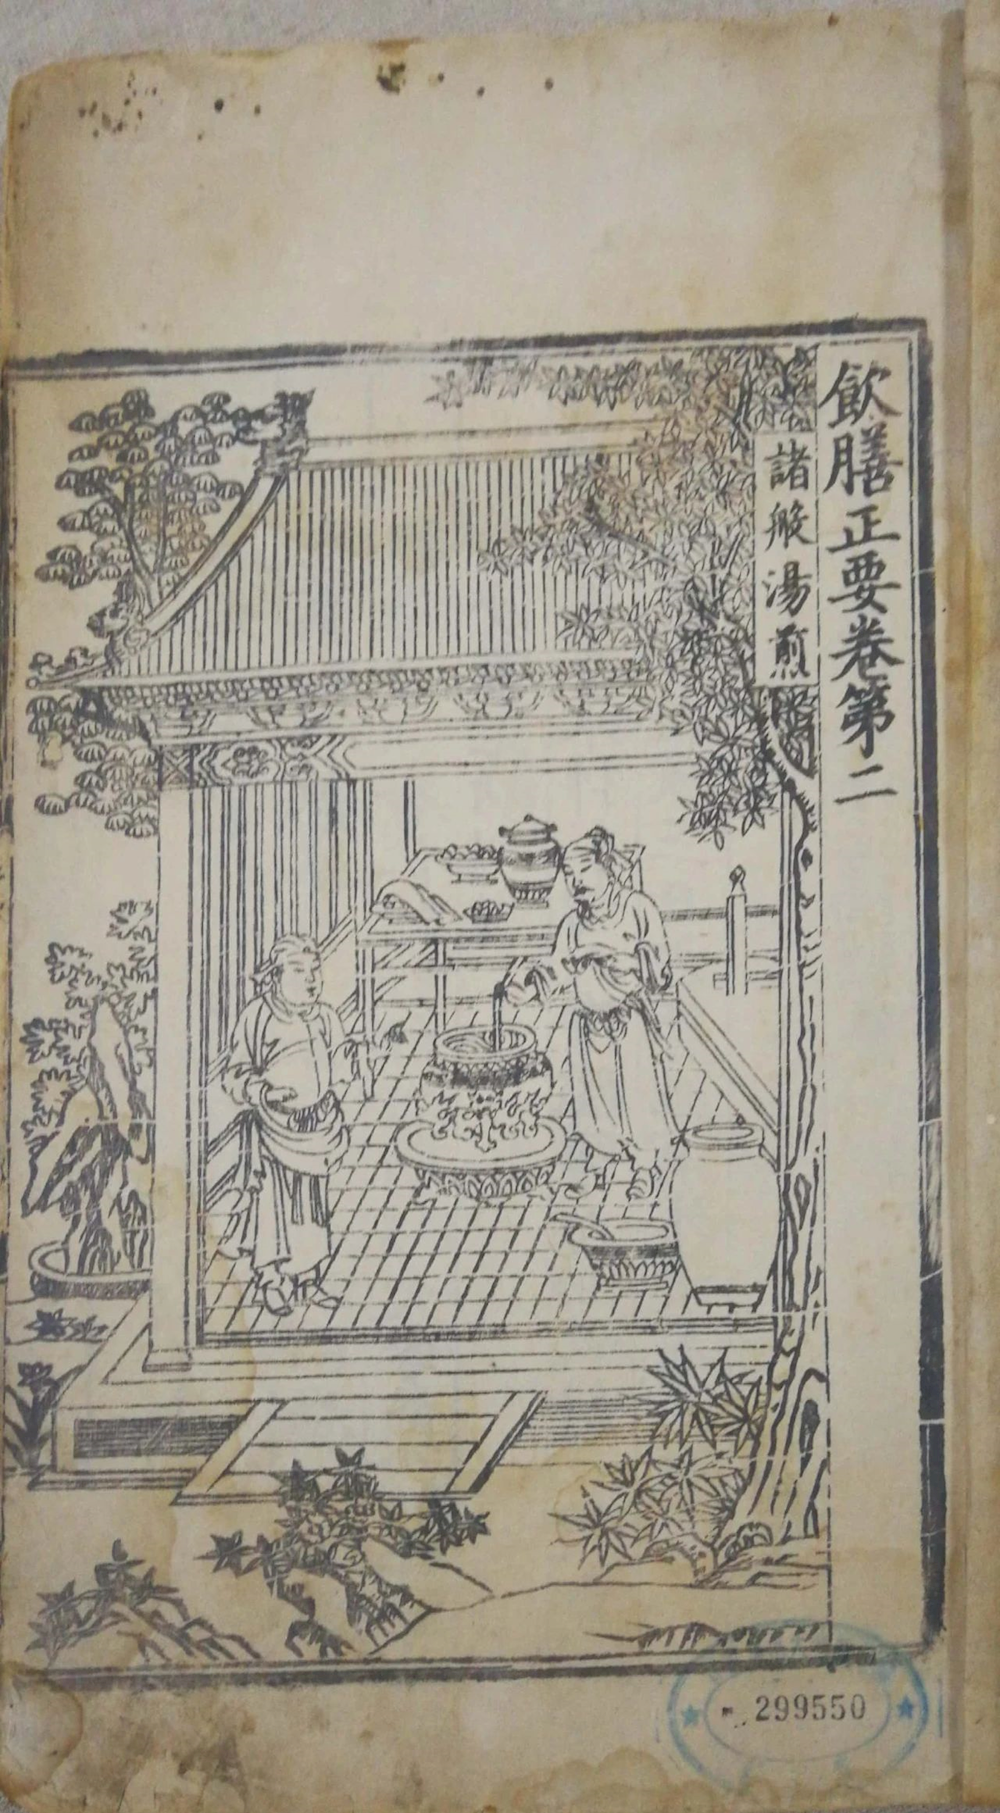 飲膳正要卷第二
諸般湯煎
299550